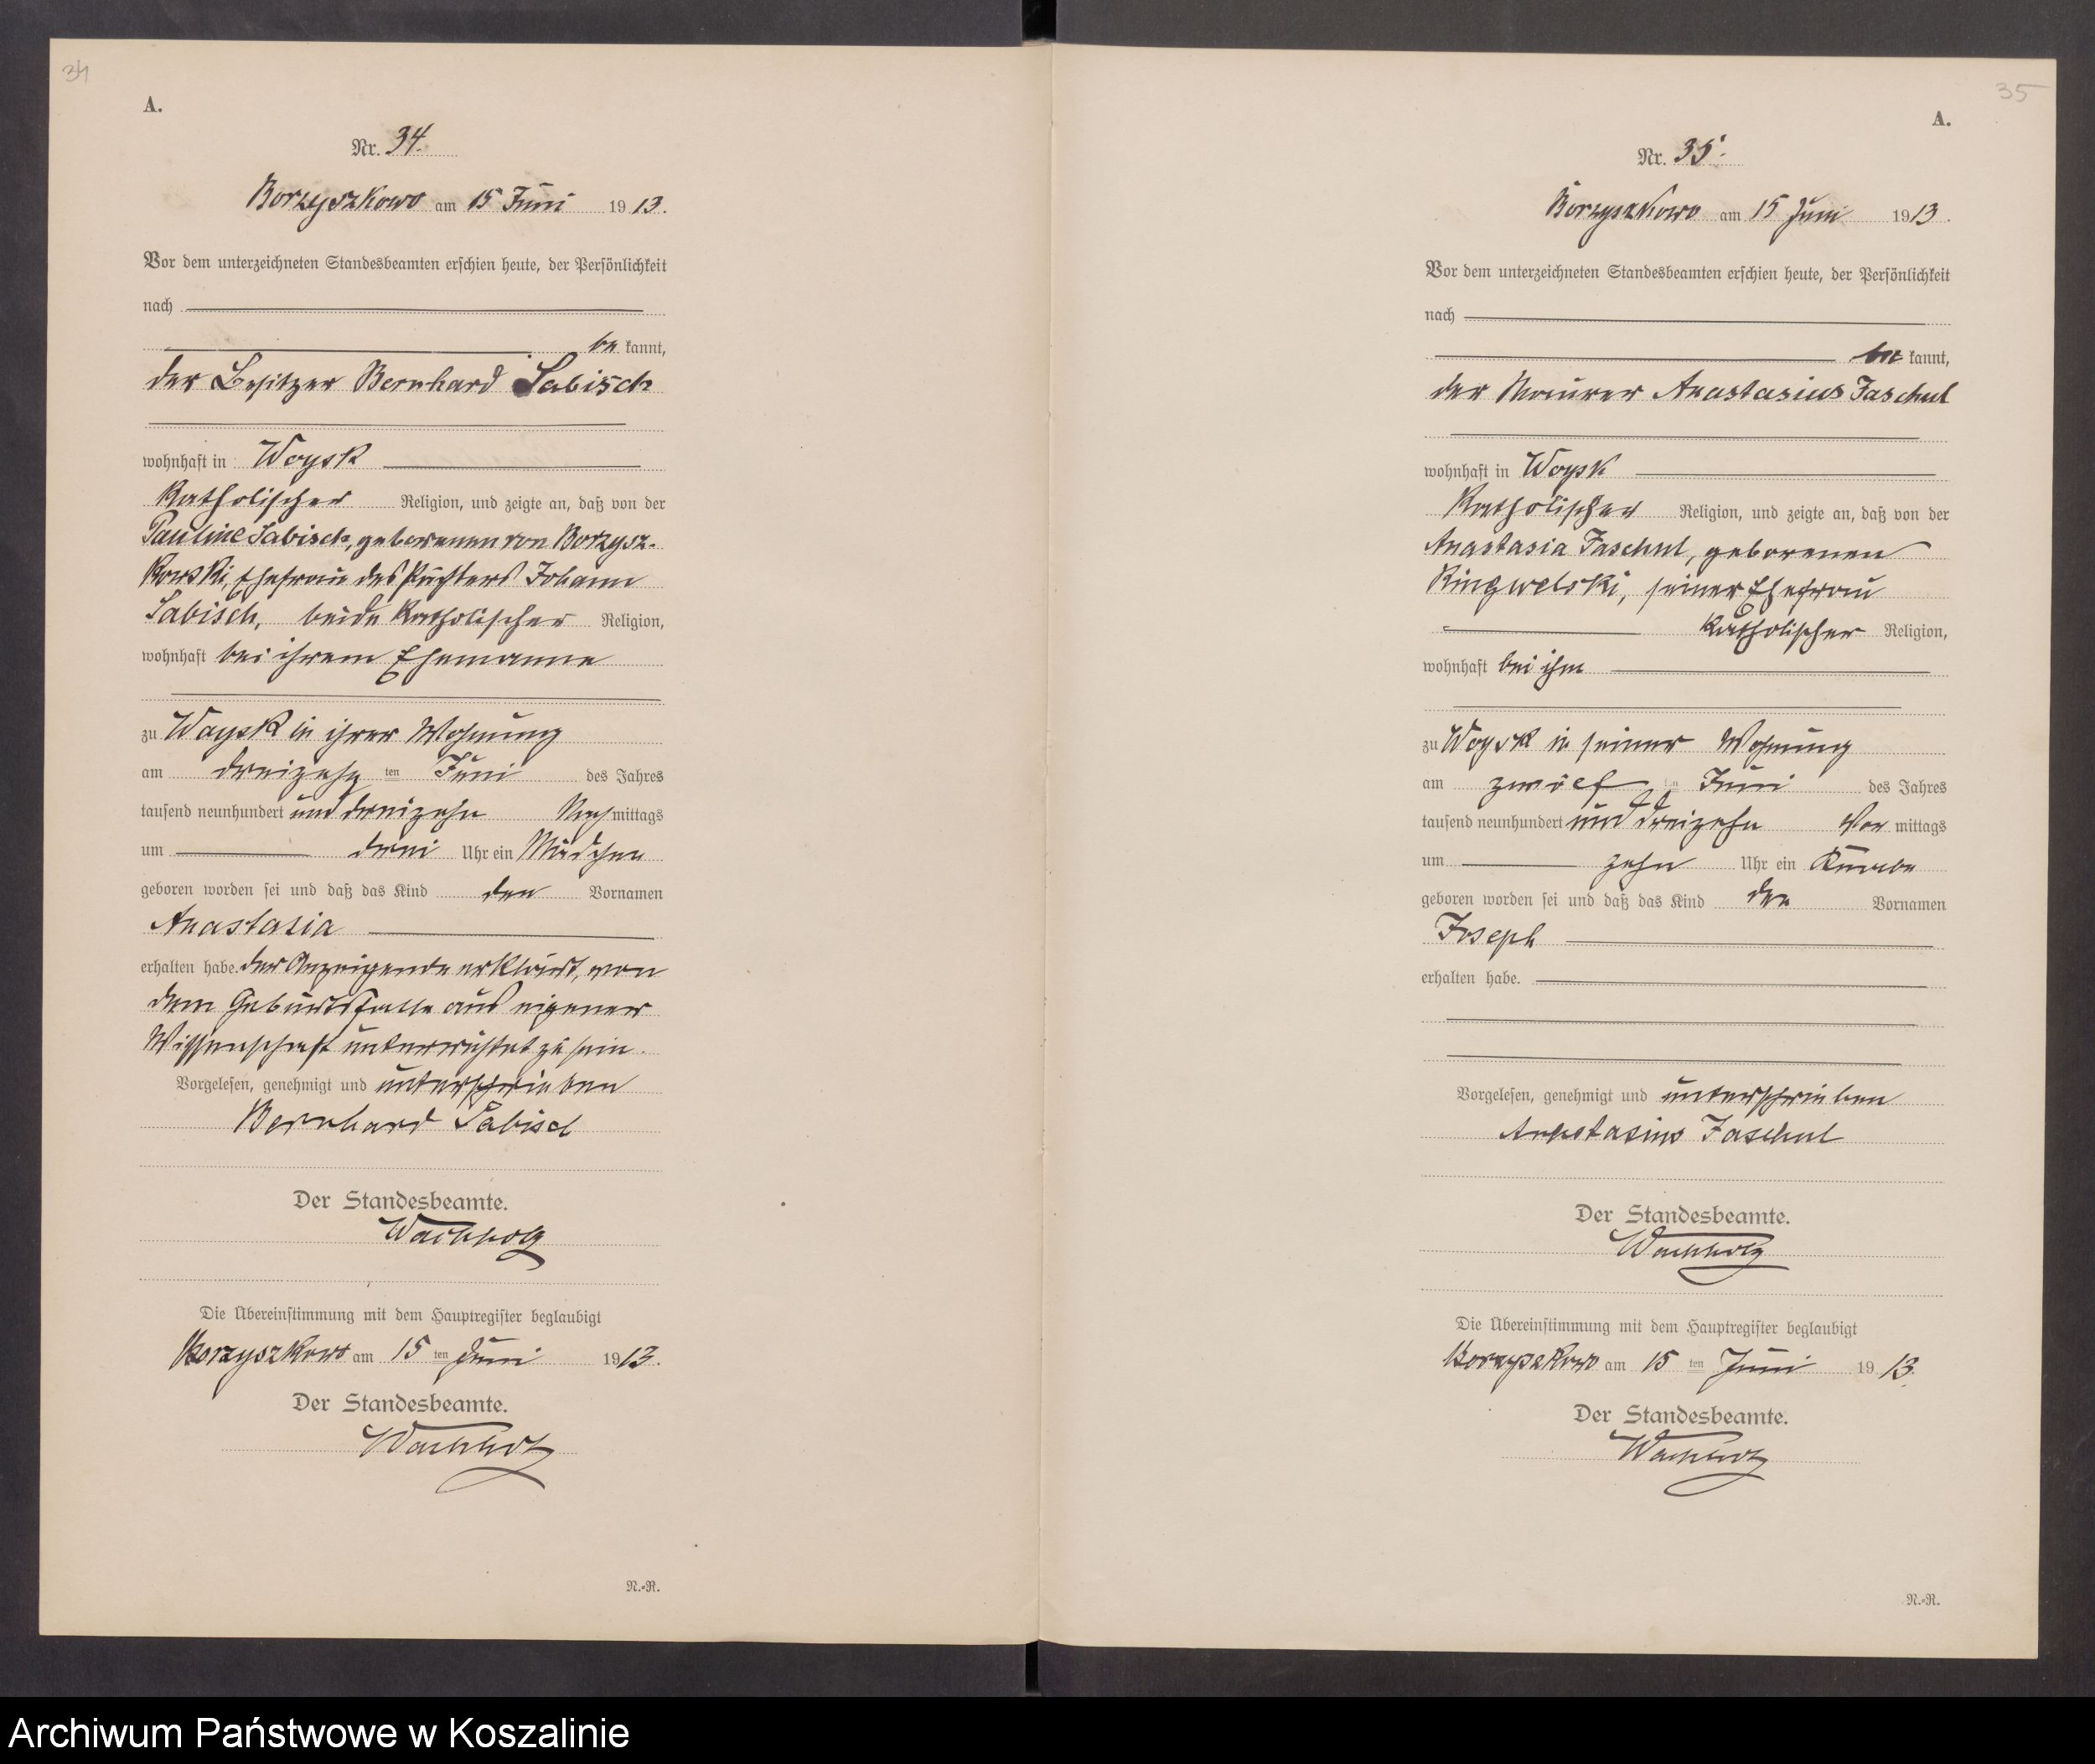 34
A.
Nr. 34.
Borzyszkowo am 15 Juni 1913.
Vor dem unterzeichneten Standesbeamten erschien heute, der Persönlichkeit
nach
be kannt,
der Besitzer Bernhard Sabisch
wohnhaft in Woysk
katholischer Religion, und zeigte an, daß von der
Pauline Sabisch, geborenen von Borzysz-
kowski, Ehefrau des Pächters Johann
Sabisch, beide katholischer Religion,
wohnhaft bei ihrem Ehemanne
zu Woysk in ihrer Wohnung
am dreizehn ten Juni des Jahres
tausend neunhundert und dreizehn Nachmittags
um drei Uhr ein Mädchen
geboren worden sei und daß das Kind den Vornamen
Anastasia
erhalten habe. Der Anzeigende erklärt, von
dem Geburtsfalle aus eigener
Wissenschaft unterrichtet zu sein.
Vorgelesen, genehmigt und unterschrieben
Bernhard Sabisch
Der Standesbeamte.
Wachholz
Die Übereinstimmung mit dem Hauptregister beglaubigt
Borzyszkowo am 15 ten Juni 1913.
Der Standesbeamte.
Wachholz
N.-R.
35
A.
Nr. 35.
Borzyszkowo am 15 Juni 1913.
Vor dem unterzeichneten Standesbeamten erschien heute, der Persönlichkeit
nach
be kannt,
der Maurer Anastasius Jaschul
wohnhaft in Woysk
katholischer Religion, und zeigte an, daß von der
Anastasia Jaschul, geborenen
Ringwelski, seiner Ehefrau
katholischer Religion,
wohnhaft bei ihm
zu Woysk in seiner Wohnung
am zwölf ten Juni des Jahres
tausend neunhundert und dreizehn Vor mittags
um zehn Uhr ein Knabe
geboren worden sei und daß das Kind den Vornamen
Joseph
erhalten habe.
Vorgelesen, genehmigt und unterschrieben
Anastasius Jaschul
Der Standesbeamte.
Wachholz
Die Übereinstimmung mit dem Hauptregister beglaubigt
Borzyszkowo am 15 ten Juni 1913.
Der Standesbeamte.
Wachholz
N.-R.
Archiwum Państwowe w Koszalinie